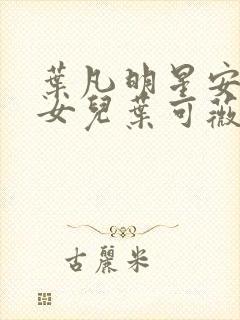 葉凡明星安
女兒葉可薇
古麗米